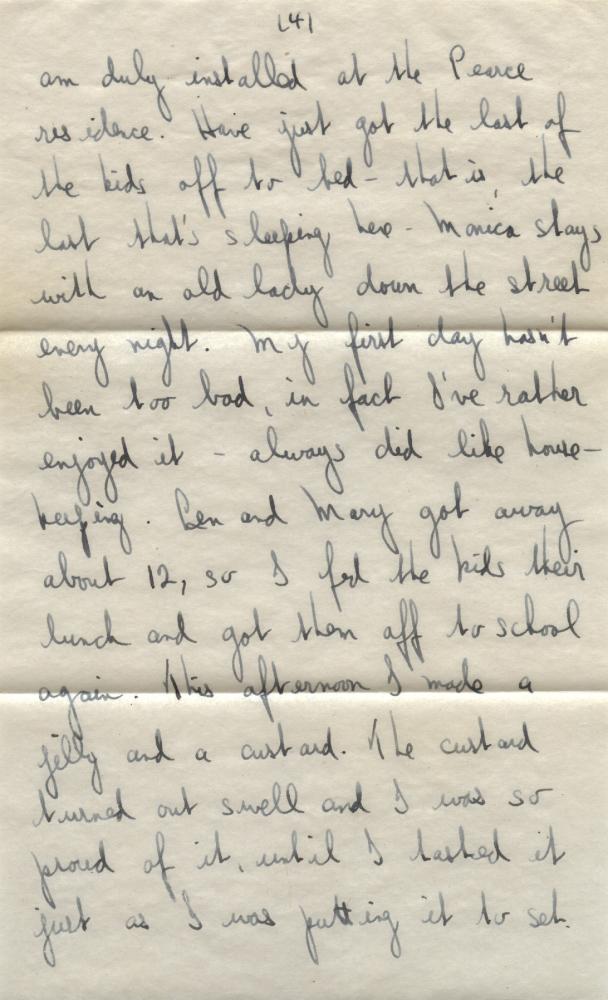 (4)
am duly installed at the Pearce
residence. Have just got the last of
the kids off to bed - that is, the
last that's sleeping here - Monica stays
with an old lady down the street
every night. My first day hasn't
been too bad, in fact I've rather
enjoyed it - always did like house-
keeping. Len and Mary got away
about 12, so I fed the kids their
lunch and got them off to school
again. This afternoon I made a
jelly and a custard. The custard
turned out swell and I was so
proud of it, until I tasted it
just as I was putting it to set.